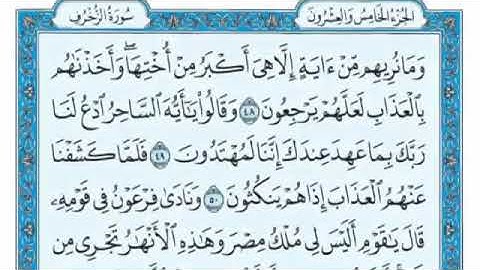 الجزء الخامس والعشرون
سورة الزخرف
وَمَا نُرِيهِم مِّنْ ءَايَةٍ إِلَّا هِىَ أَكْبَرُ مِنْ أُخْتِهَا ۖ وَأَخَذْنَٰهُم
بِٱلْعَذَابِ لَعَلَّهُمْ يَرْجِعُونَ ٤٨ وَقَالُوا۟ يَٰٓأَيُّهَ ٱلسَّاحِرُ ٱدْعُ لَنَا
رَبَّكَ بِمَا عَهِدَ عِندَكَ إِنَّنَا لَمُهْتَدُونَ ٤٩ فَلَمَّا كَشَفْنَا
عَنْهُمُ ٱلْعَذَابَ إِذَا هُمْ يَنكُثُونَ ٥٠ وَنَادَىٰ فِرْعَوْنُ فِى قَوْمِهِۦ
قَالَ يَٰقَوْمِ أَلَيْسَ لِى مُلْكُ مِصْرَ وَهَٰذِهِ ٱلْأَنْهَٰرُ تَجْرِى مِن